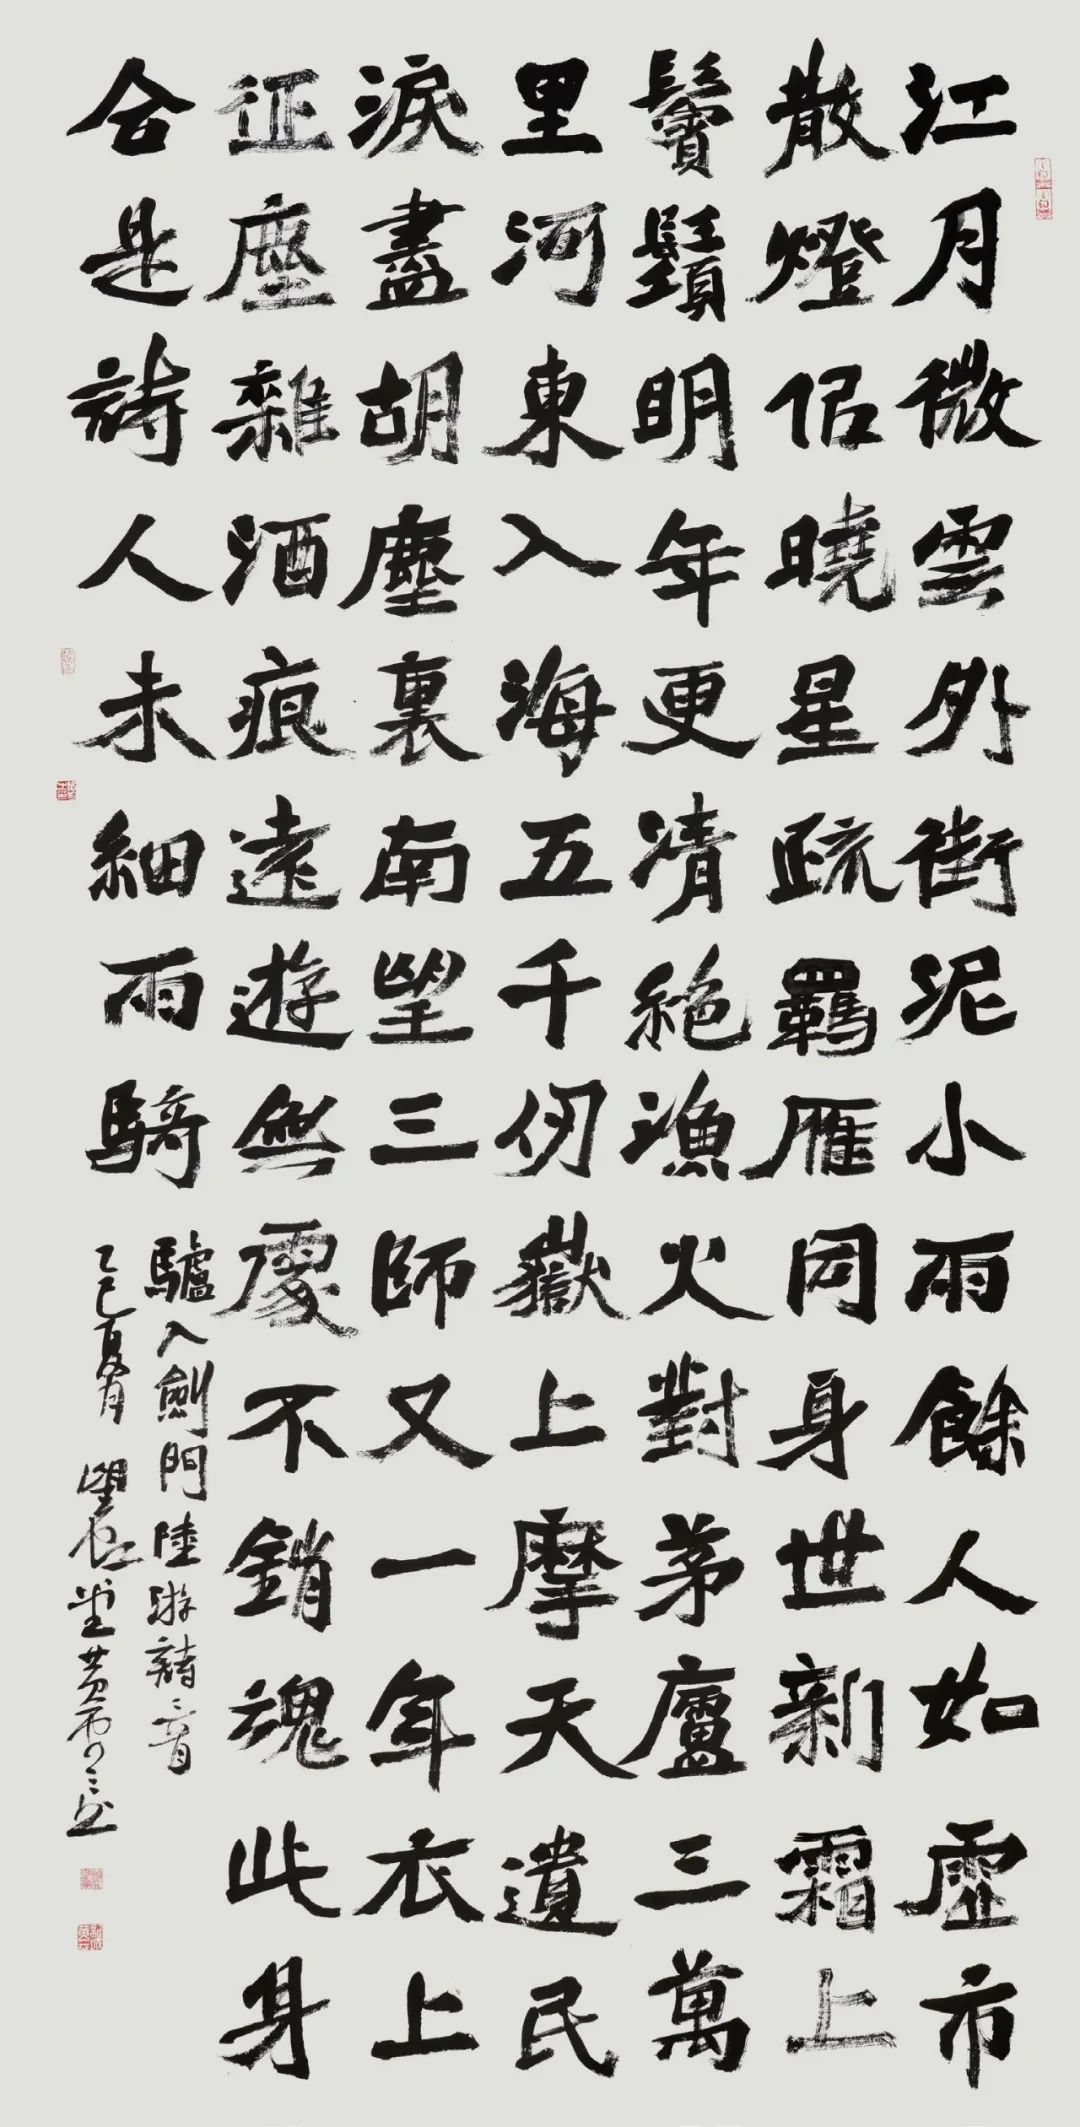 江月微雲外街泥小雨餘人如虛市
散燈佀曉星疏羈雁同身世新霜上
鬢鬚明年更清絕漁火對茅廬三萬
里河東入海五千仞嶽上摩天遺民
淚盡胡塵裏南望三師又一年衣上
征塵雜酒痕遠遊無處不銷魂此身
合是詩人未細雨騎
驢入劍門陸游詩三首
乙巳夏月